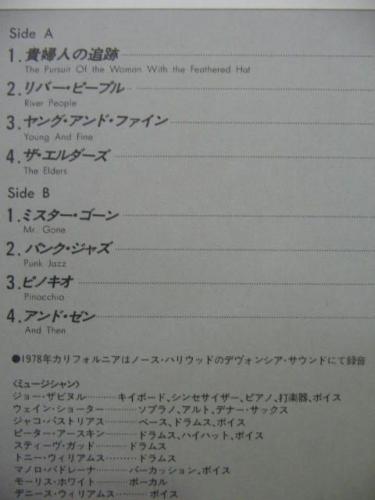 Side A
1.貴婦人の追跡
The Pursuit Of the Woman With the Feathered Hat
2.リバー・ピープル
River People
3.ヤング・アンド・ファイン
Young And Fine
4.ザ・エルダーズ
The Elders
Side B
1.ミスター・ゴーン
Mr. Gone
2.パンク・ジャズ
Punk Jazz
3.ピノキオ
Pinocchio
4.アンド・ゼン
And Then
●1978年カリフォルニアはノース・ハリウッドのデヴォンシア・サウンドにて録音
〈ミュージシャン〉
ジョー・ザビヌル………キイボード、シンセサイザー、ピアノ、打楽器、ボイス
ウェイン・ショーター………ソプラノ、アルト、テナー・サックス
ジャコ・パストリアス………ベース、ドラムス、ボイス
ピーター・アースキン………ドラムス、ハイハット、ボイス
スティーヴ・ガッド………ドラムス
トニー・ウィリアムス………ドラムス
マノロ・バドレーナ………パーカッション、ボイス
モーリス・ホワイト………ボーカル
デニース・ウィリアムス………ボイス